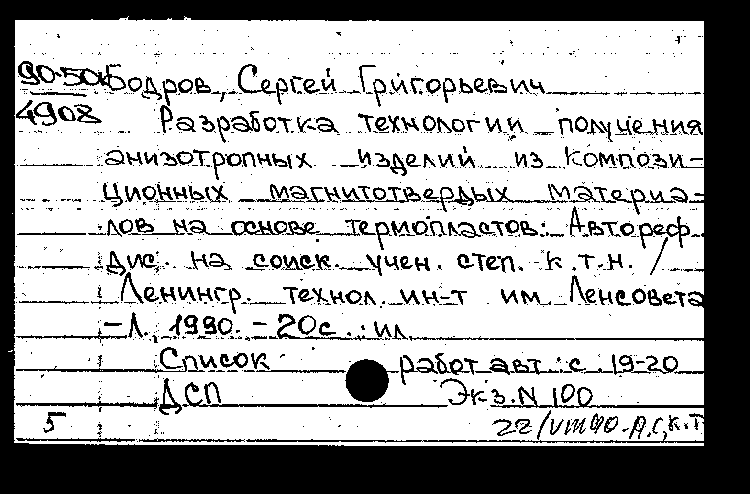 90-50 Бодров, Сергей Григорьевич
4908 Разработка технологии получения
анизотропных изделий из компози-
ционных магнитотвердых материа-
лов на основе термопластов: Автореф.
дис. на соиск. учен. степ. к.т.н. /
Ленингр. технол. ин-т им Ленсовета
- Л., 1990. - 20с.: ил
Список работ авт.: с. 19-20
ДСП Экз. N 100
5 22/VIII 90-